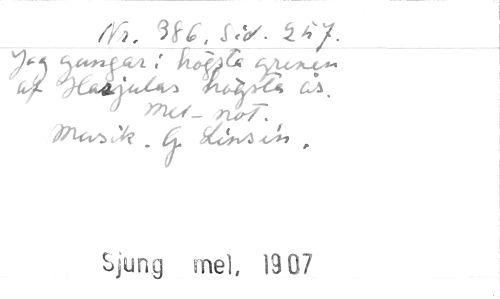 Nr. 386. Sid. 257.
Jag gungar i högsta grenen
af Harjulas högsta ås.
Mel-not.
Musik. G. Linsén.
Sjung mel, 1907